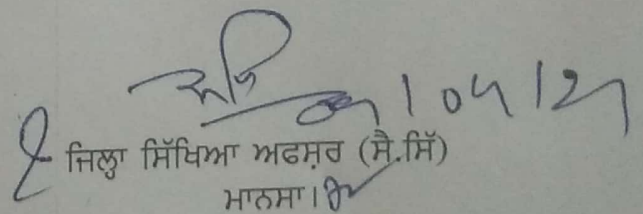 /04/21
ਜਿਲ੍ਹਾ ਸਿੱਖਿਆ ਅਫਸ਼ਰ (ਸੈ.ਸਿੱ)
ਮਾਨਸਾ।